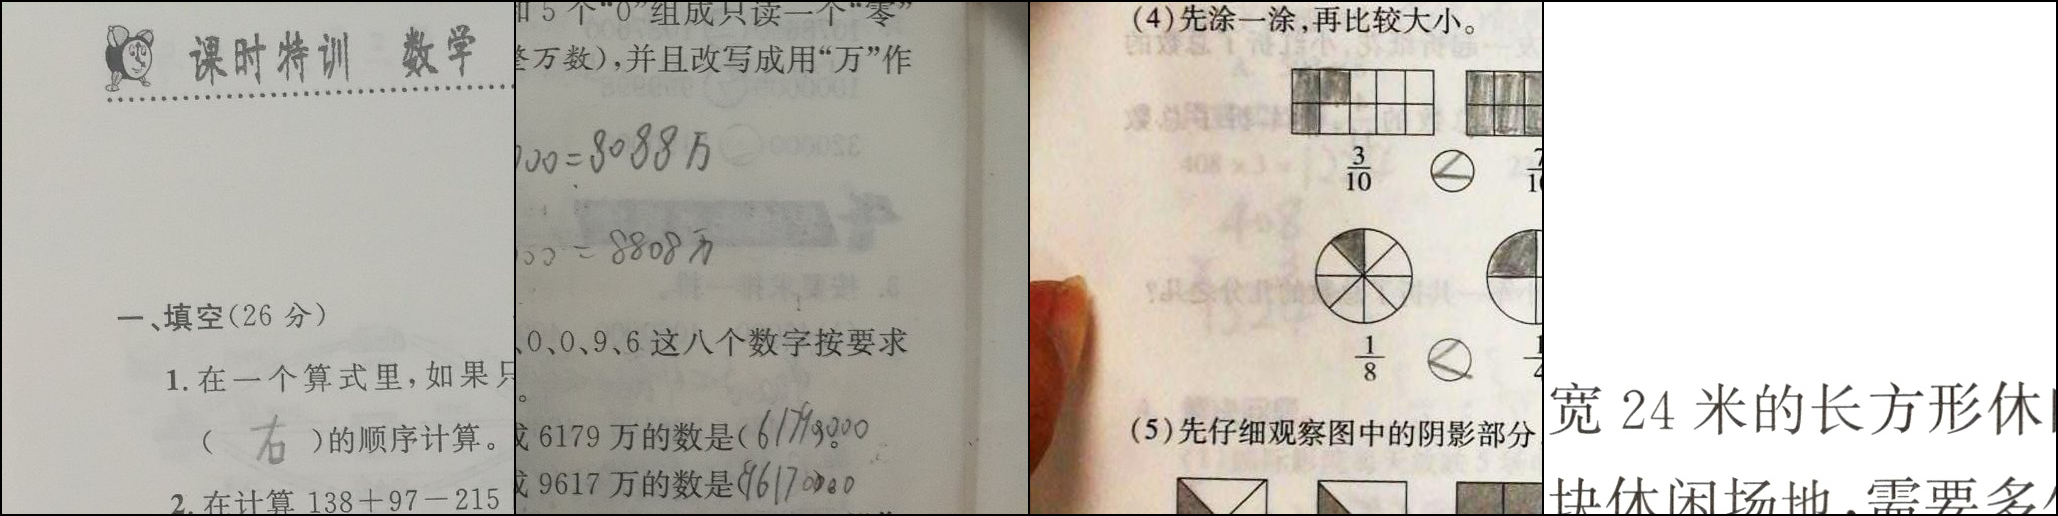 课时特训 数学
一、填空(26 分)
1. 在一个算式里,如果只
( 右 )的顺序计算。
2. 在计算 138+97-215
和 5 个“0”组成只读一个“零”
整万数),并且改写成用“万”作
000=8088万
000=8808万
、0、0、9、6 这八个数字按要求
。
成 6179 万的数是(61790000
成 9617 万的数是(96170000
(4)先涂一涂,再比较大小。
3/10 < 7/10
1/8 < 1/4
(5)先仔细观察图中的阴影部分
宽 24 米的长方形休
块休闲场地,需要多